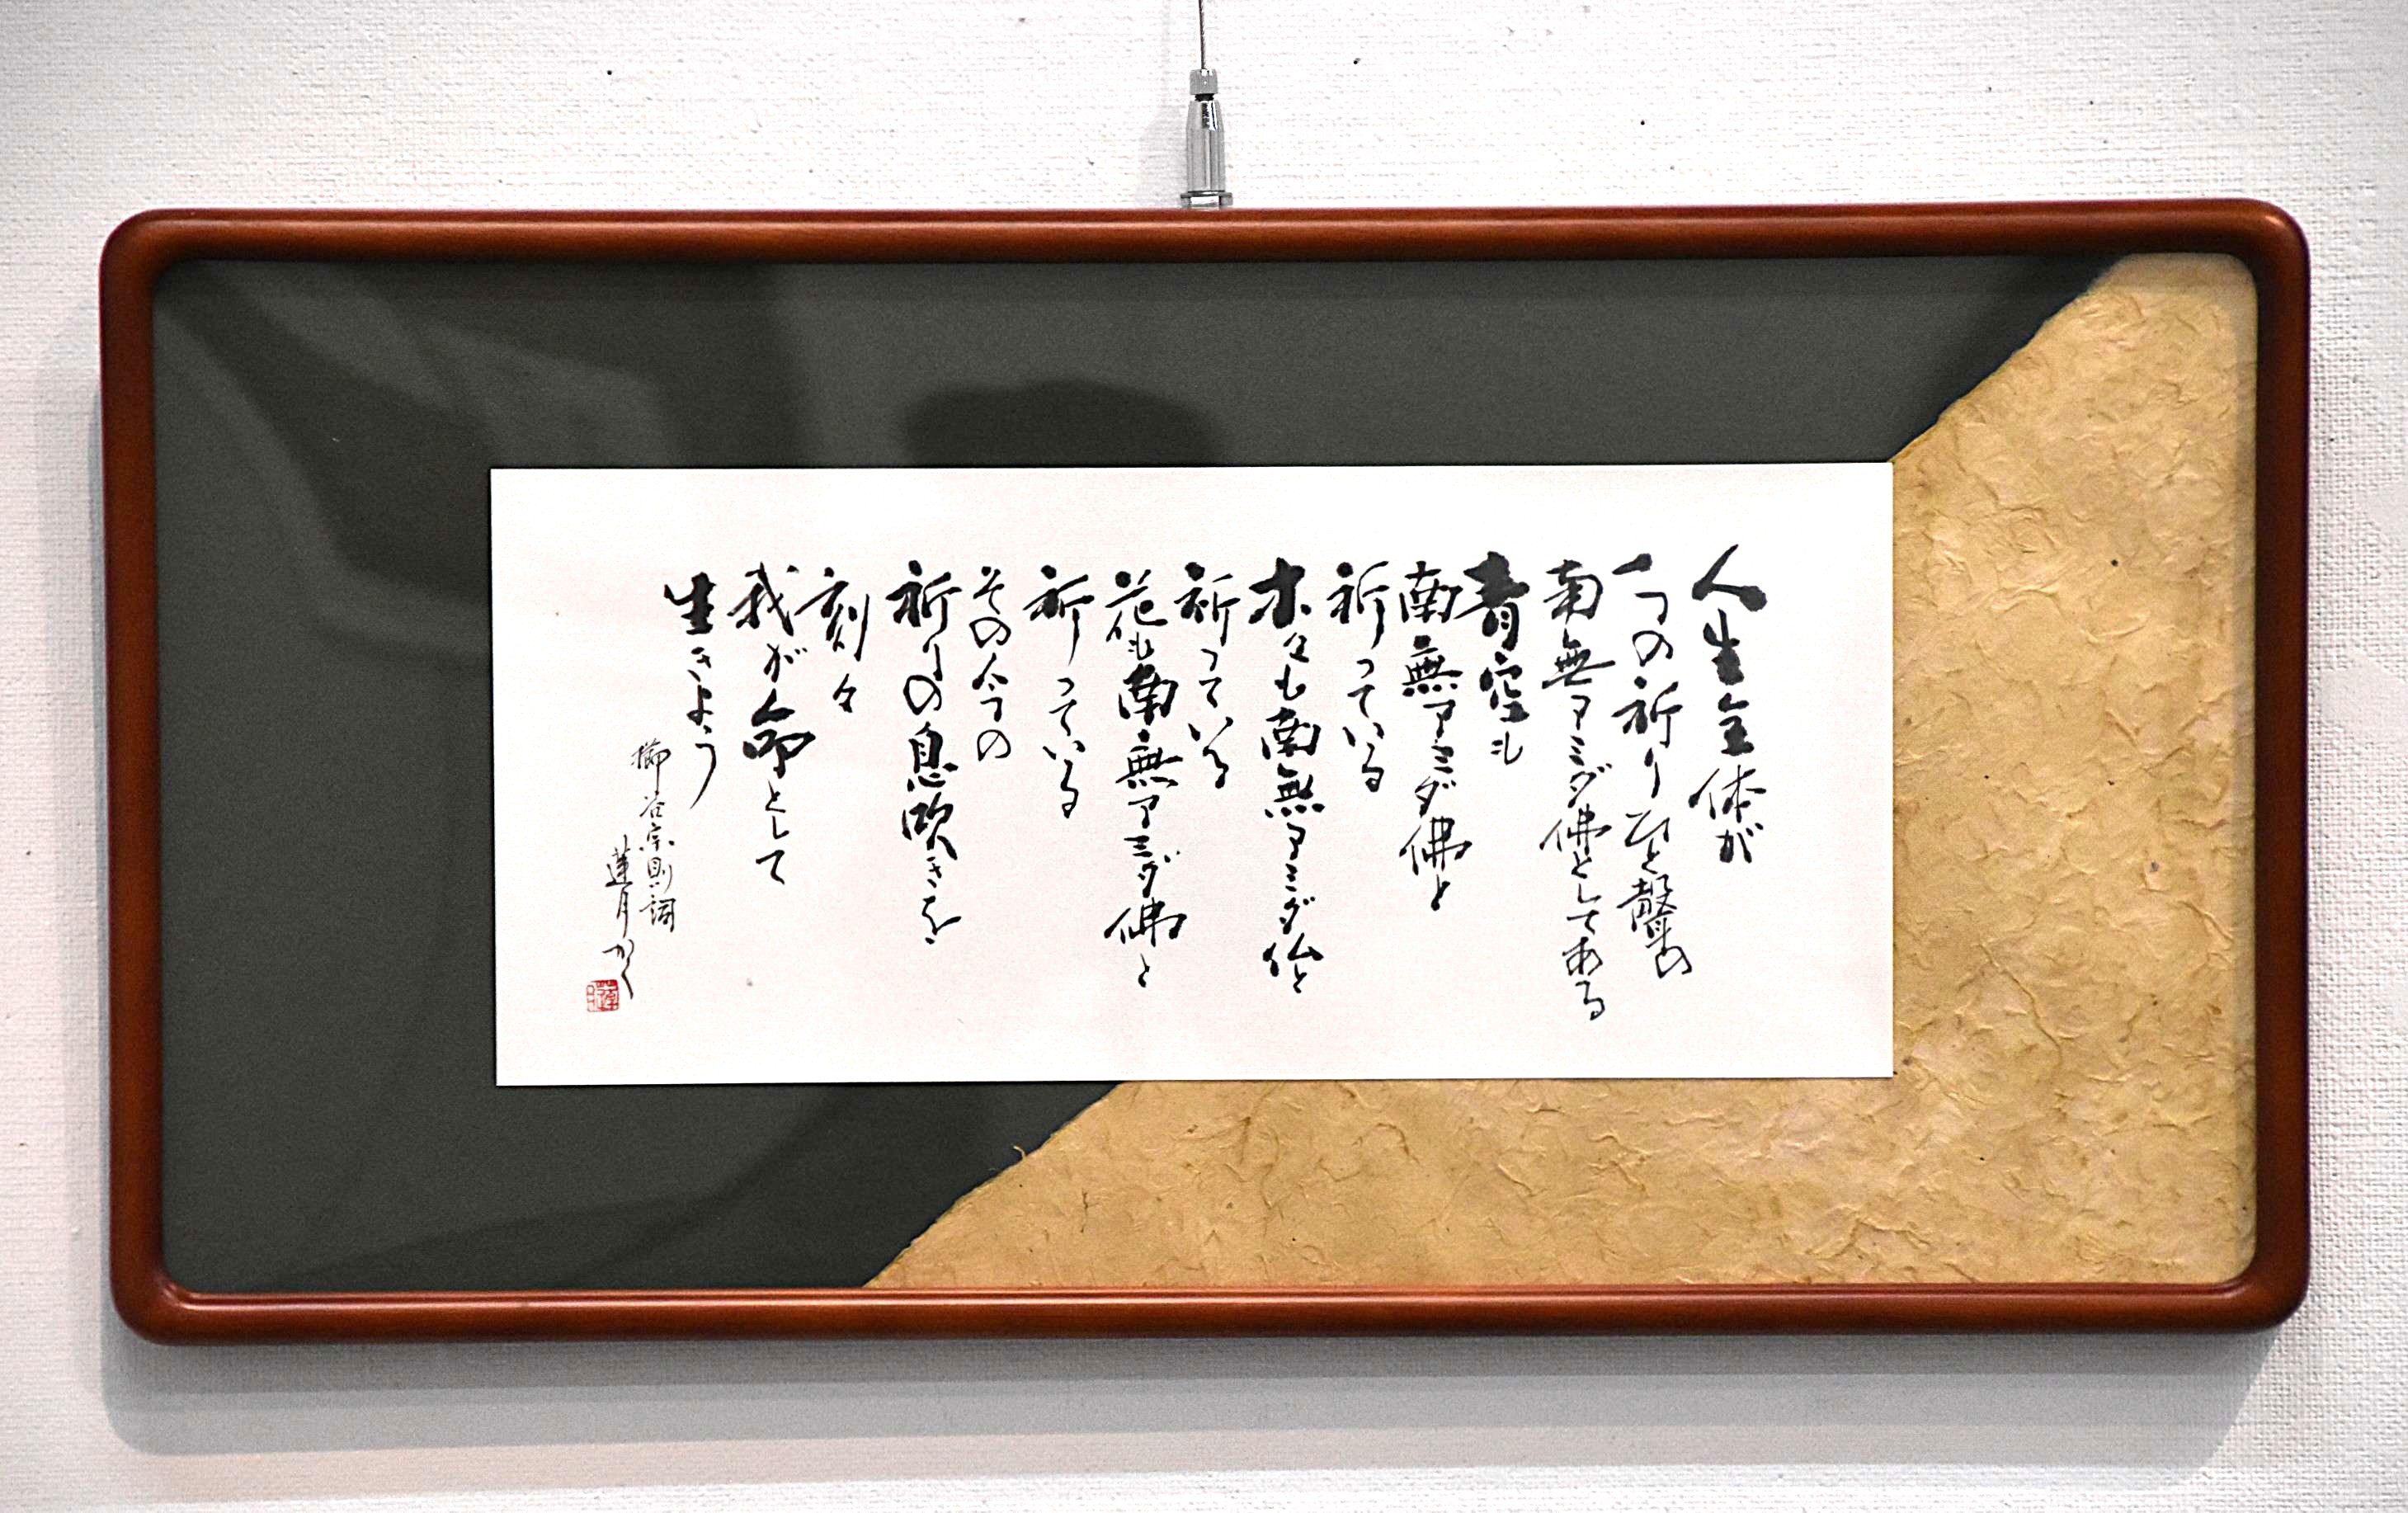 人生全体が
一つの祈りひと聲の
南無アミダ佛としてある
青空も
南無アミダ佛と
祈っている
木々も南無アミダ仏と
祈っている
花も南無アミダ佛と
祈っている
その今の
祈りの息吹きを
刻々
我が命として
生きよう
櫛谷宗則詞
蓮月かく